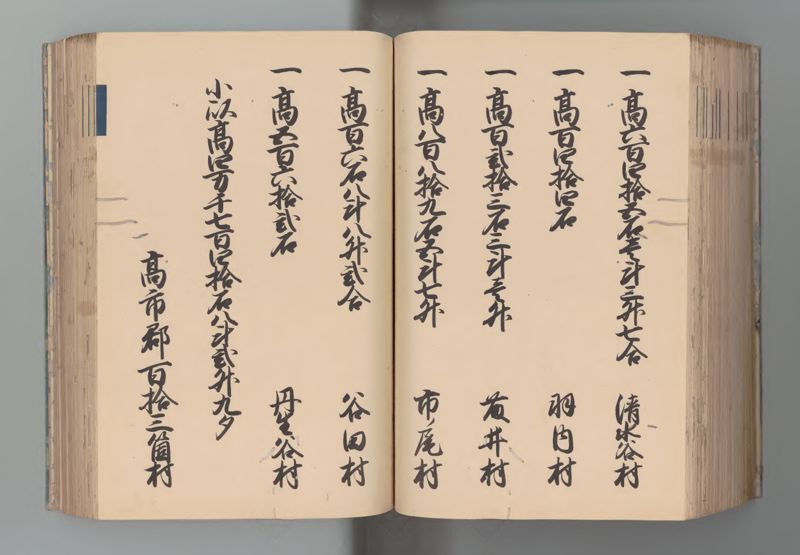 一高六百四拾五石壱斗三升七合　清水谷村
一高百四拾四石　羽内村
一高百弐拾三石三斗壱升　藤井村
一高八百八拾九石五斗七升　市ノ尾村
一高百六石八斗八升弐合　谷田村
一高五百六拾弐石　丹生谷村
小以高四万千七百四拾石八斗弐升九夕
高市郡百拾三箇村